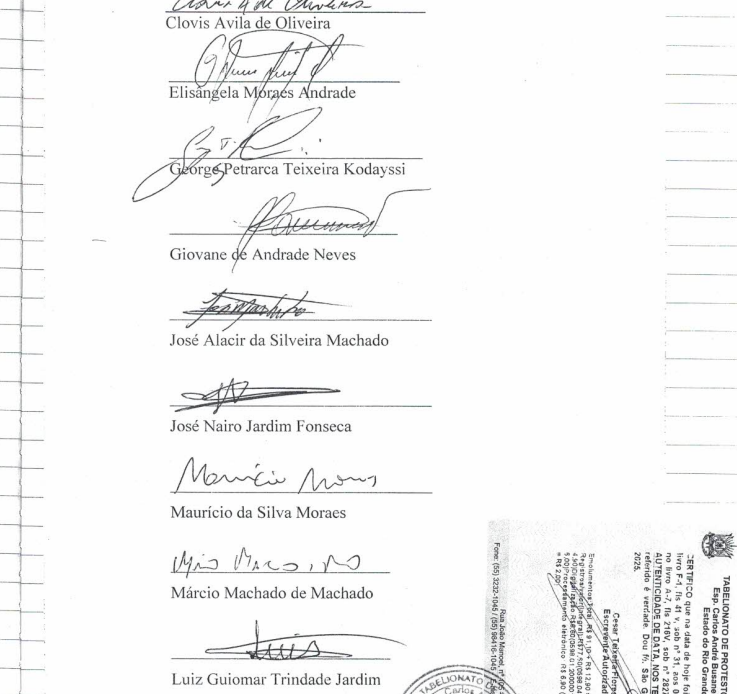 Clovis Avila de Oliveira
Elisângela Moraes Andrade
George Petrarca Teixeira Kodayssi
Giovane de Andrade Neves
José Alacir da Silveira Machado
José Nairo Jardim Fonseca
Maurício da Silva Moraes
Márcio Machado de Machado
Luiz Guiomar Trindade Jardim
TABELIONATO DE PROTESTO
Esp. Carlos André Busane
Estado do Rio Grand
CERTIFICO que na data de hoje fo
livro F-1, fls 41 v, sob nº 31, aos
no livro A-7, fls 216V, sob nº 282
AUTENTICIDADE DE DATA, NOS TE
referido é verdade. Dou fé. São G
2025.
Escrevente Autorizad
Rua João Manoel, nº
Fone: (55) 3232-1045 / (55) 98416-1045
TABELIONATO DE
Carlos